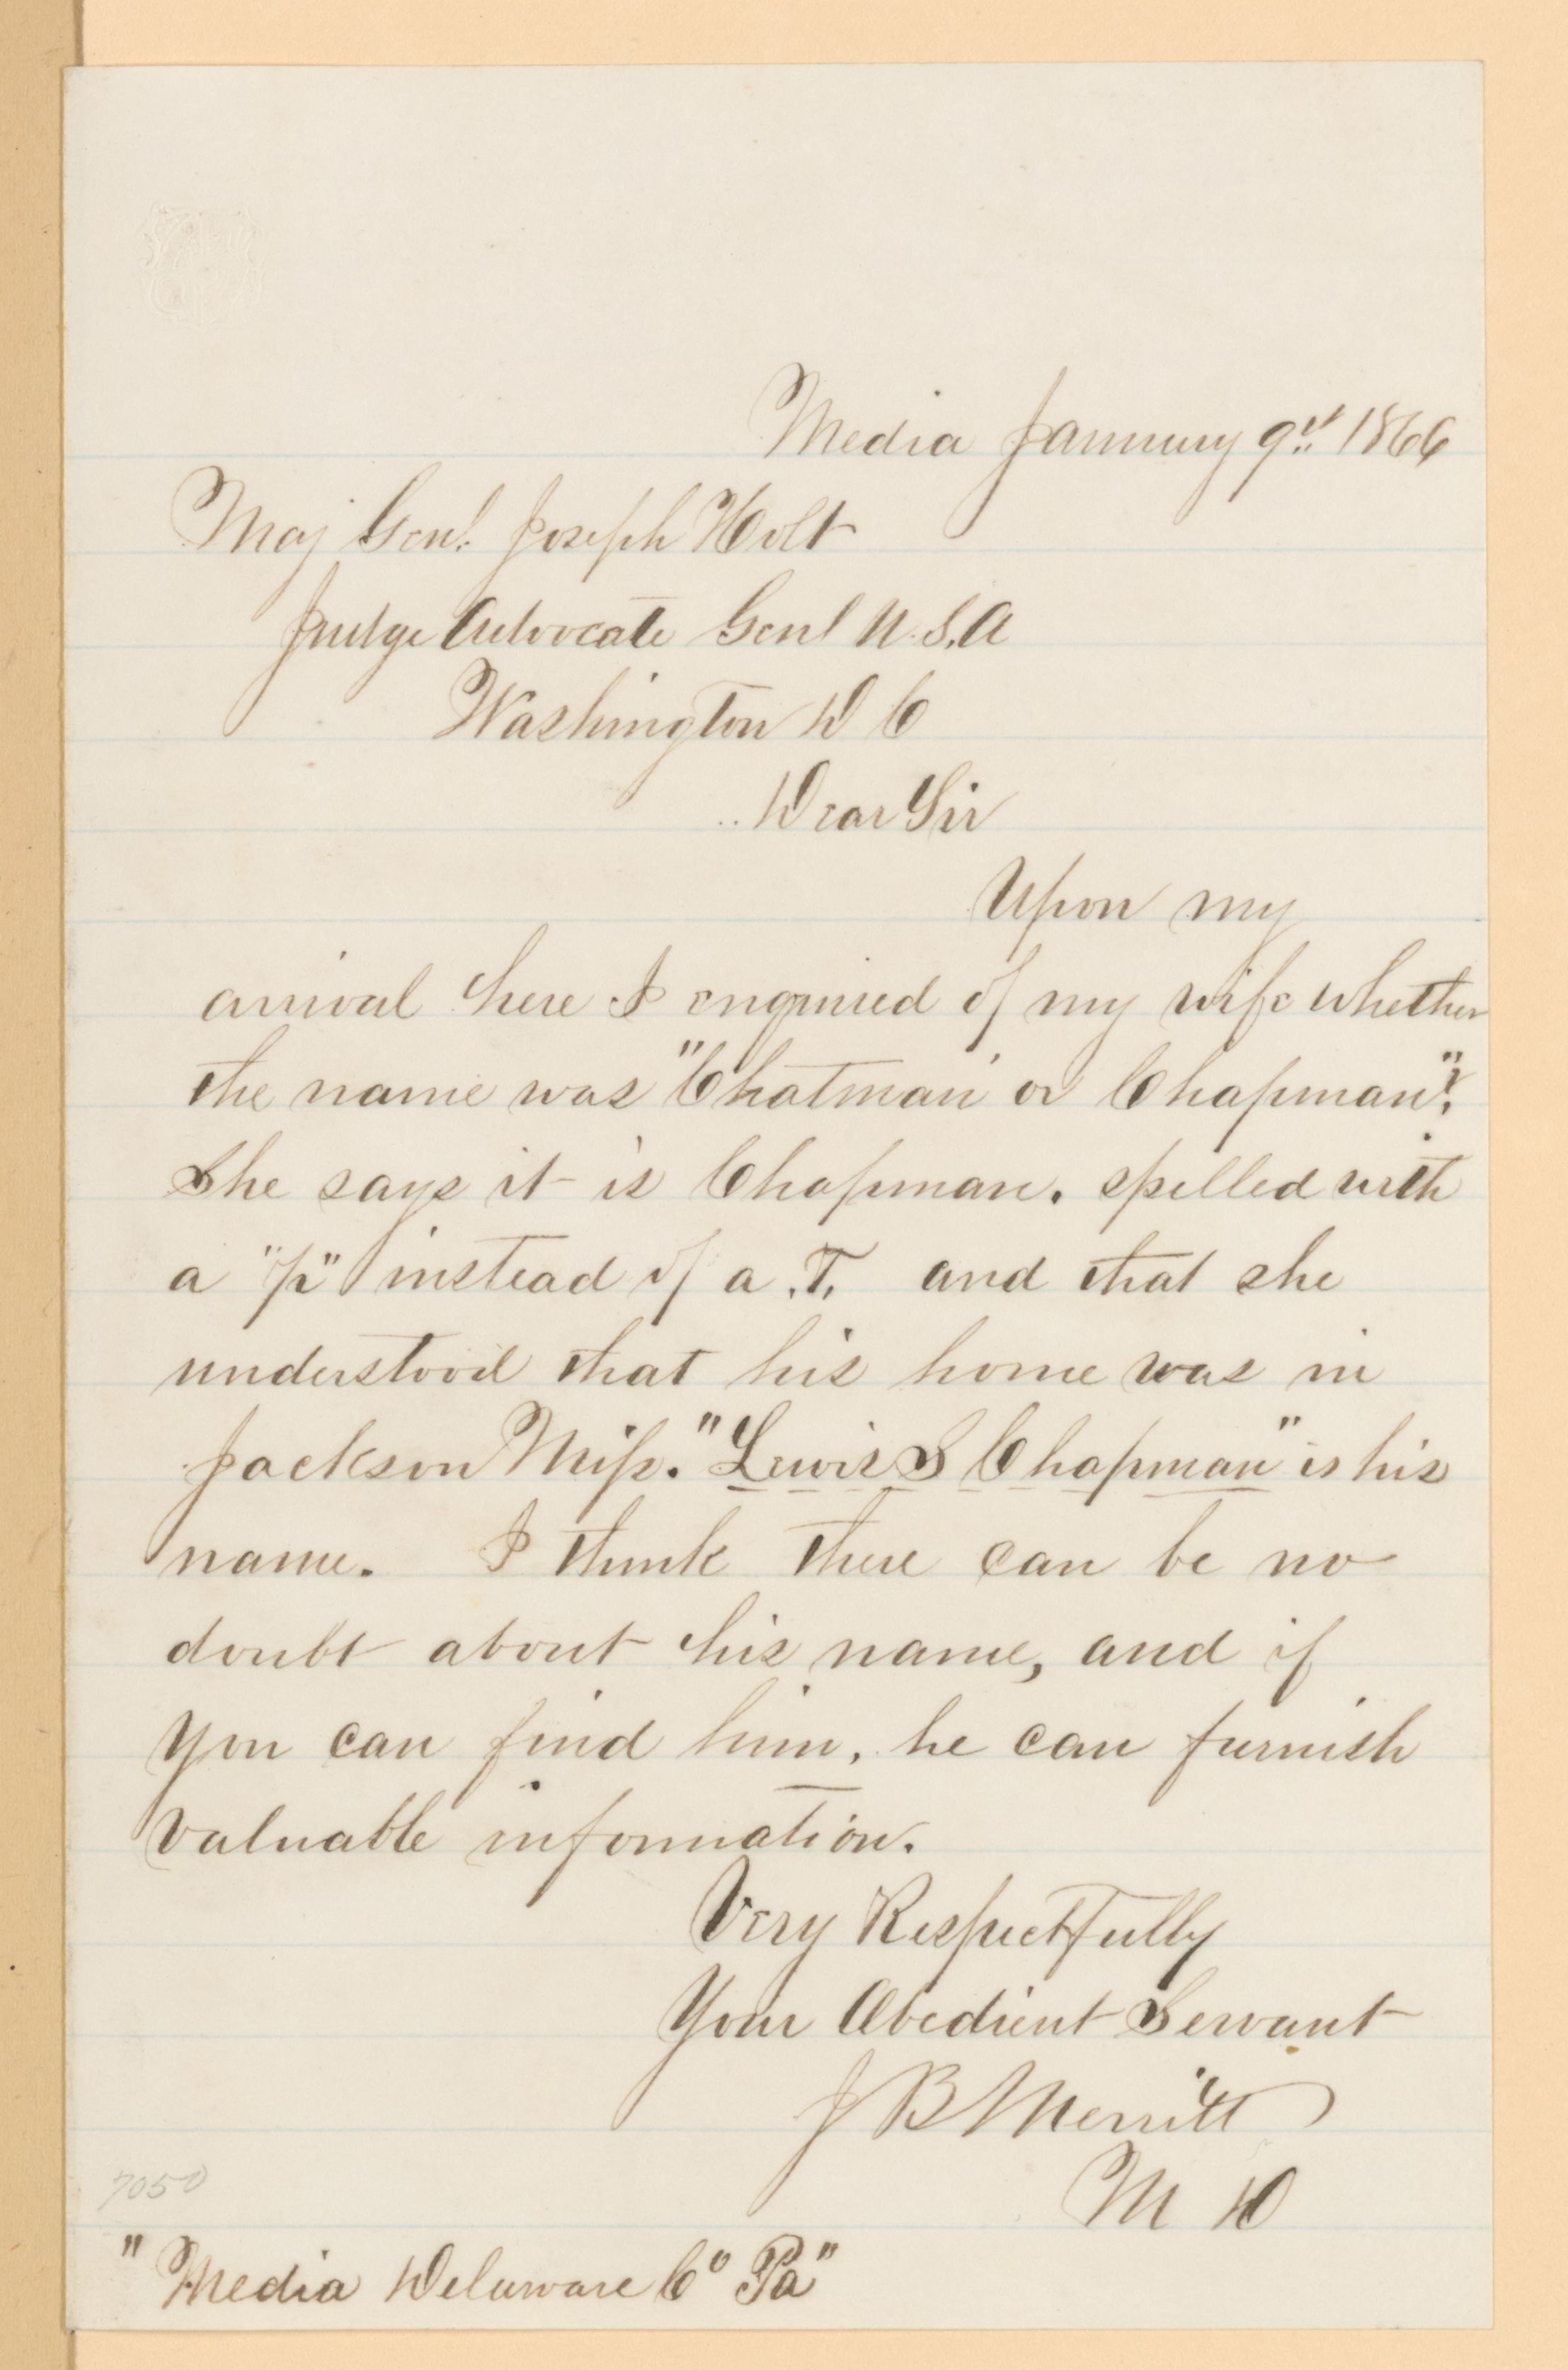 Media January 9th 1866
Maj Genl. Joseph Holt
Judge Advocate Genl U.S.A
Washington D C
Dear Sir
Upon my
arrival here I enquired of my wife whether
the name was "Chatman or Chapman"?
She says it is Chapman. spelled with
a "p" instead of a .T. and that she
understood that his home was in
Jackson Miss. "Lewis S Chapman" is his
name. I think there can be no
doubt about his name, and if
you can find him, he can furnish
valuable information.
Very Respectfully
Your Obedient Servant
J B Merritt
M D
7050
"Media Delaware Co Pa"